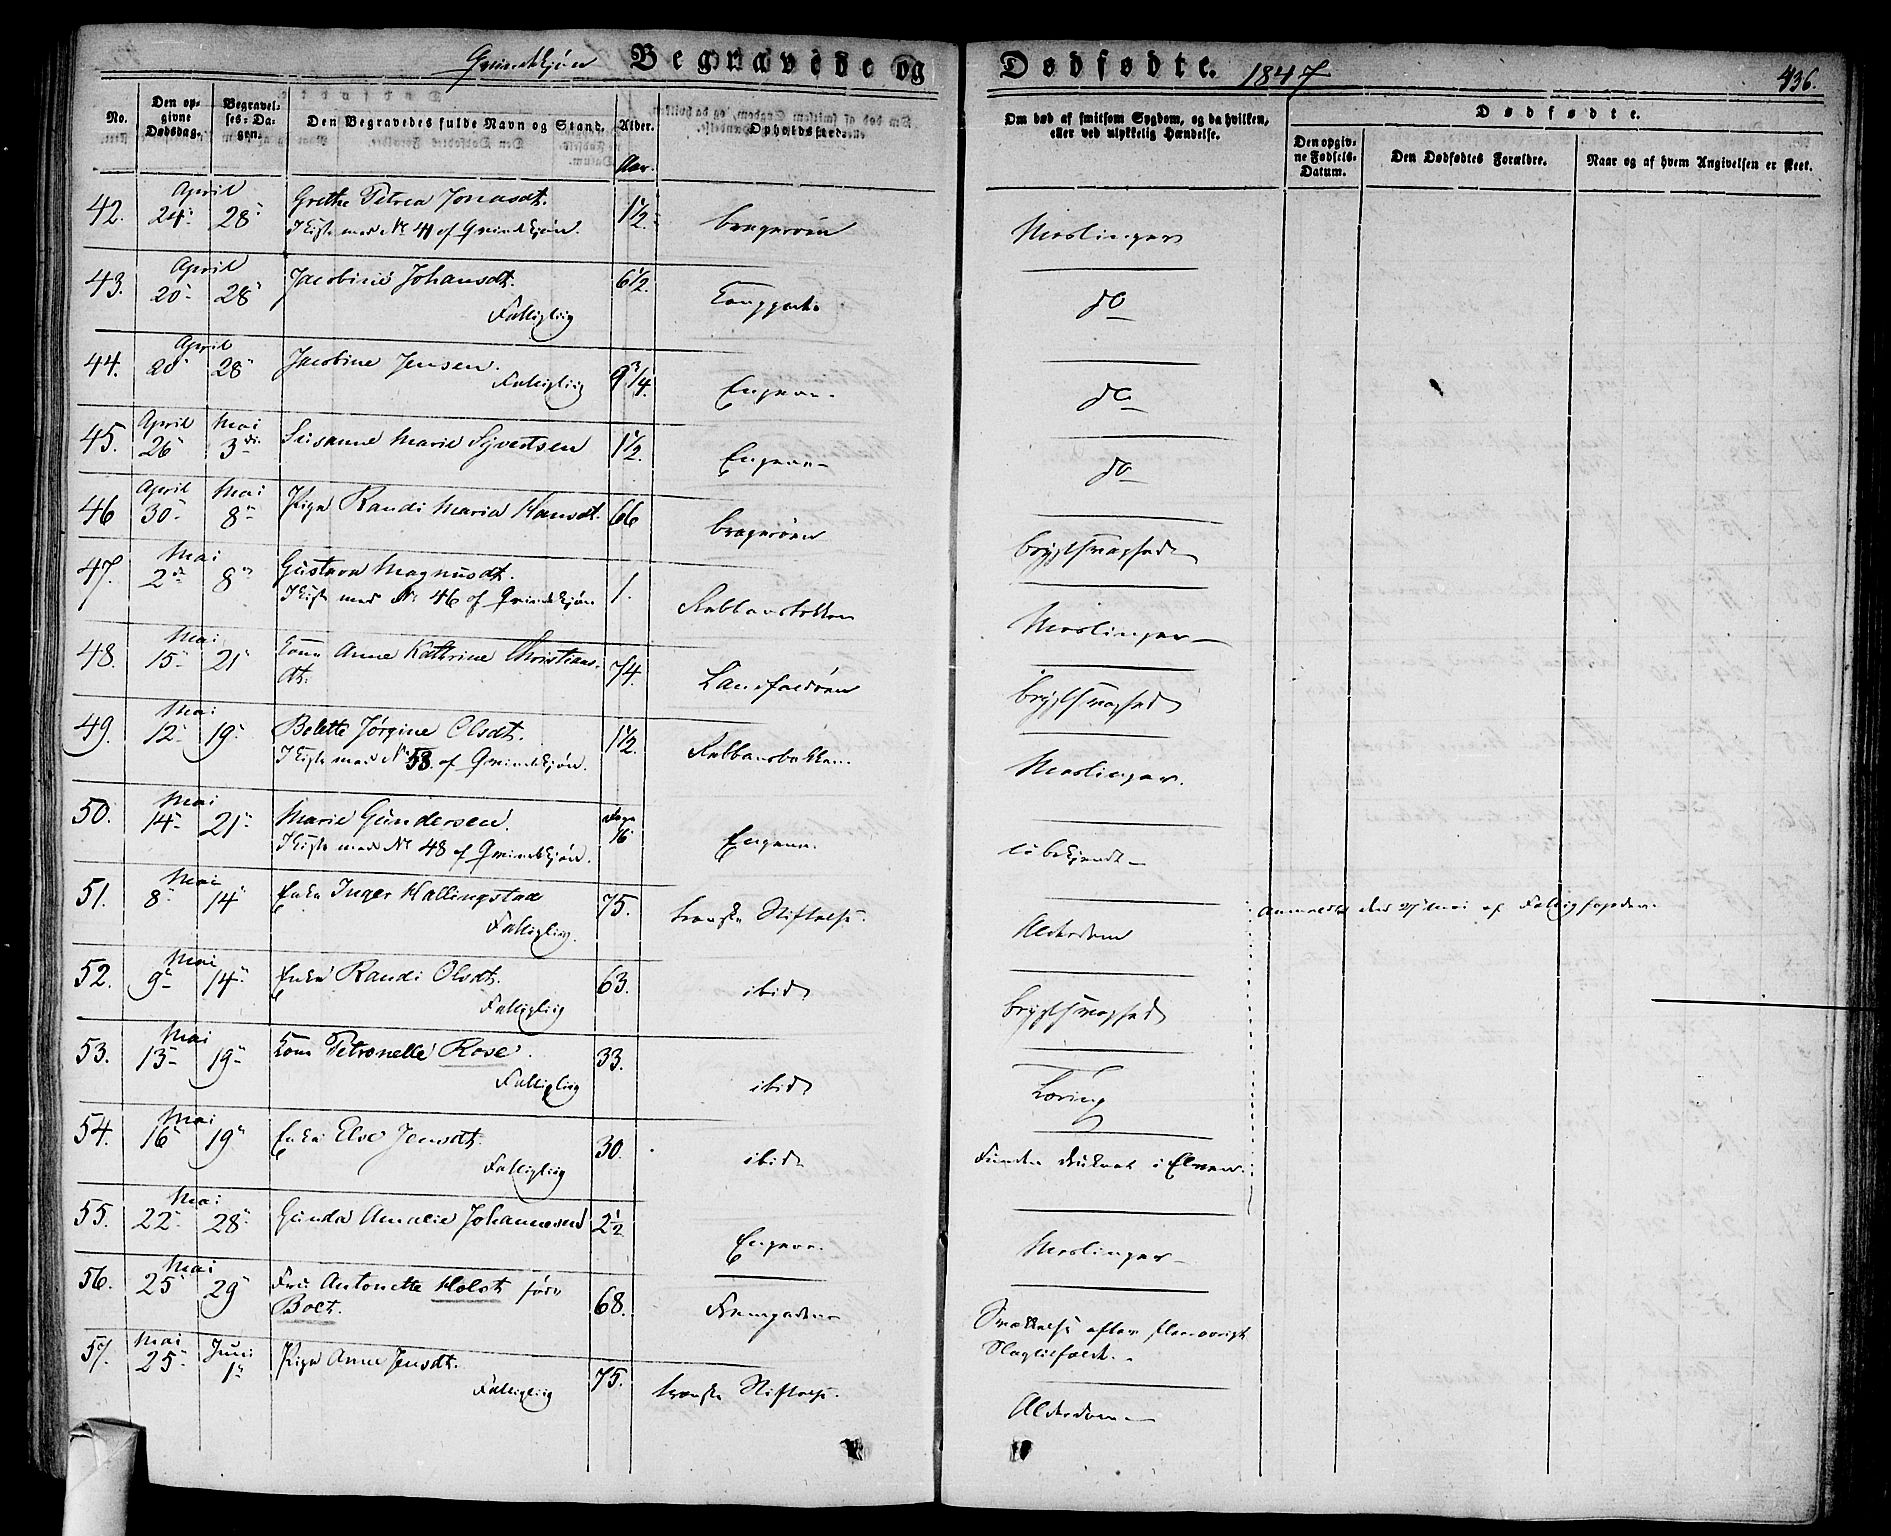 Qvindekjøn Begravede og Dødfødte. 1847 436.
No. Den opgivne Dødsdag. Begravelses-Dagen. Den Begravedes fulde Navn og Stand. Alder. Opholdssted. Om død af smitsom Sygdom, og da hvilken, eller ved ulykkelig Hændelse. Dødfødte.
Aar. Den opgivne Fødsels-Datum. Den Dødfødtes Forældre. Naar og af hvem Angivelsen er skeet.
42. April 24 28 Grethe Petrea Jonasdt. 1 1/2 Bragerøen Meslinger
I Kiste med No 41 af Qvindekjøn.
43. April 20 28 Jacobine Johansdt. 6 1/2 Tanggata do
Fattiglig
44. April 20 28 Jacobine Jensen. 9 3/4 Engene do
Fattiglig
45. April 26 Mai 3die Susanne Marie Syvertsen 1 1/2 Engene do
46 April 30 Mai 8 Pige Randi Maria Hansdt. 66 Bragerøen Brystsvaghed
47. Mai 2 8 Gustava Magnusdt. 1. Meslinger
I Kiste med No 46 af Qvindekjøn
48. Mai 15 21 Kone Anne Kathrine Christiansdt. 74. Brystsvaghed
49. Mai 12 19 Belette Jørgine Olsdt. 1 1/2 Meslinger.
I Kiste med No 53. af Qvindekjøn.
50. Mai 14 21 Marie Gundersen. Dage 16 Engene. Ubekjendt
I Kiste med No 48 af Qvindekjøn.
51. Mai 8 14 Enke Inger Hallingstad 75. Svenske Stiftelse. Alderdom Anmeldt den Mai af
Fattiglig.
52. Mai 9 14 Enke Randi Olsdt. 63. ibid Brystsvaghed
Fattiglig
53. Mai 13 19 Kone Petronelle Rose. 33. ibid Tæring
Fattiglig
54. Mai 16 19 Enke Elve Jensdt. 30. ibid Funden druknet i Elven.
Fattiglig
55. Mai 22 28 Gunda Amalie Johannesen 2 1/2 Engene. Meslinger
56. Mai 25 29 Fru Antonette Holst født 68. Svækkelse efter
Boet. Slagtilfælde.
57. Mai 25 Juni 1 Pige Anne Jensdt. 75. Svenske Stiftelse. Alderdom
Fattiglig